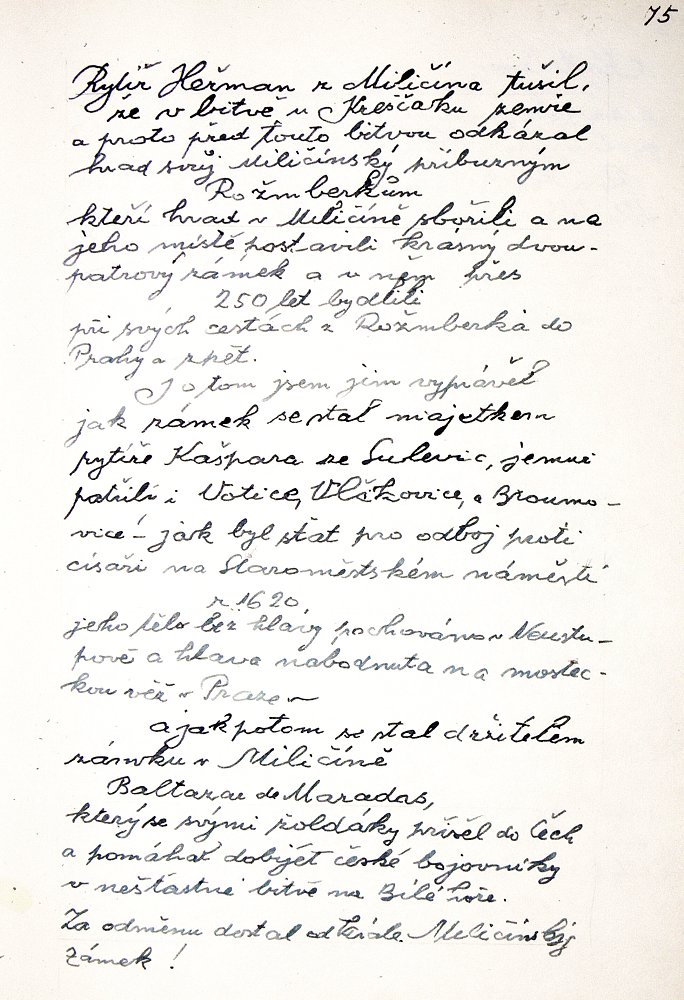 75
Rytíř Heřman z Miličína tušil,
že v bitvě u Kreščaku zemře
a proto před touto bitvou odkázal
hrad svůj Miličínský příbuzným
Rožmberkům
kteří hrad v Miličíně sbořili a na
jeho místě postavili krásný dvou-
patrový zámek a v něm přes
250 let bydlili
při svých cestách z Rožmberka do
Prahy a zpět.
I o tom jsem jim vyprávěl
jak zámek se stal majetkem
rytíře Kašpara ze Sulevic, jemuž
patřili i Votice, Vlčkovice, a Broumo-
vice! - jak byl sťat pro odboj proti
císaři na Staroměstském náměstí
r. 1620,
jeho tělo bez hlavy pochováno v Neustu-
pově a hlava nabodnuta na mostec-
kou věž v Praze -
a jak potom se stal držitelem
zámku v Miličíně
Baltazar de Maradas,
který se svými žoldáky přišel do Čech
a pomáhal dobíjet české bojovníky
v nešťastné bitvě na Bílé hoře.
Za odměnu dostal od krále Miličínský
zámek!